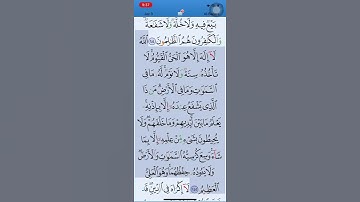 9:37
بَيْعٌ فِيهِ وَلَا خُلَّةٌ وَلَا شَفَٰعَةٌ
وَٱلْكَٰفِرُونَ هُمُ ٱلظَّٰلِمُونَ ٢٥٤ ٱللَّهُ
لَآ إِلَٰهَ إِلَّا هُوَ ٱلْحَىُّ ٱلْقَيُّومُ لَا
تَأْخُذُهُۥ سِنَةٌ وَلَا نَوْمٌ لَّهُۥ مَا فِى
ٱلسَّمَٰوَٰتِ وَمَا فِى ٱلْأَرْضِ مَن ذَا
ٱلَّذِى يَشْفَعُ عِندَهُۥٓ إِلَّا بِإِذْنِهِۦ
يَعْلَمُ مَا بَيْنَ أَيْدِيهِمْ وَمَا خَلْفَهُمْ وَلَا
يُحِيطُونَ بِشَىْءٍ مِّنْ عِلْمِهِۦٓ إِلَّا بِمَا
شَآءَ وَسِعَ كُرْسِيُّهُ ٱلسَّمَٰوَٰتِ وَٱلْأَرْضَ
وَلَا يَـُٔودُهُۥ حِفْظُهُمَا وَهُوَ ٱلْعَلِىُّ
ٱلْعَظِيمُ ٢٥٥ لَآ إِكْرَاهَ فِى ٱلدِّينِ قَد